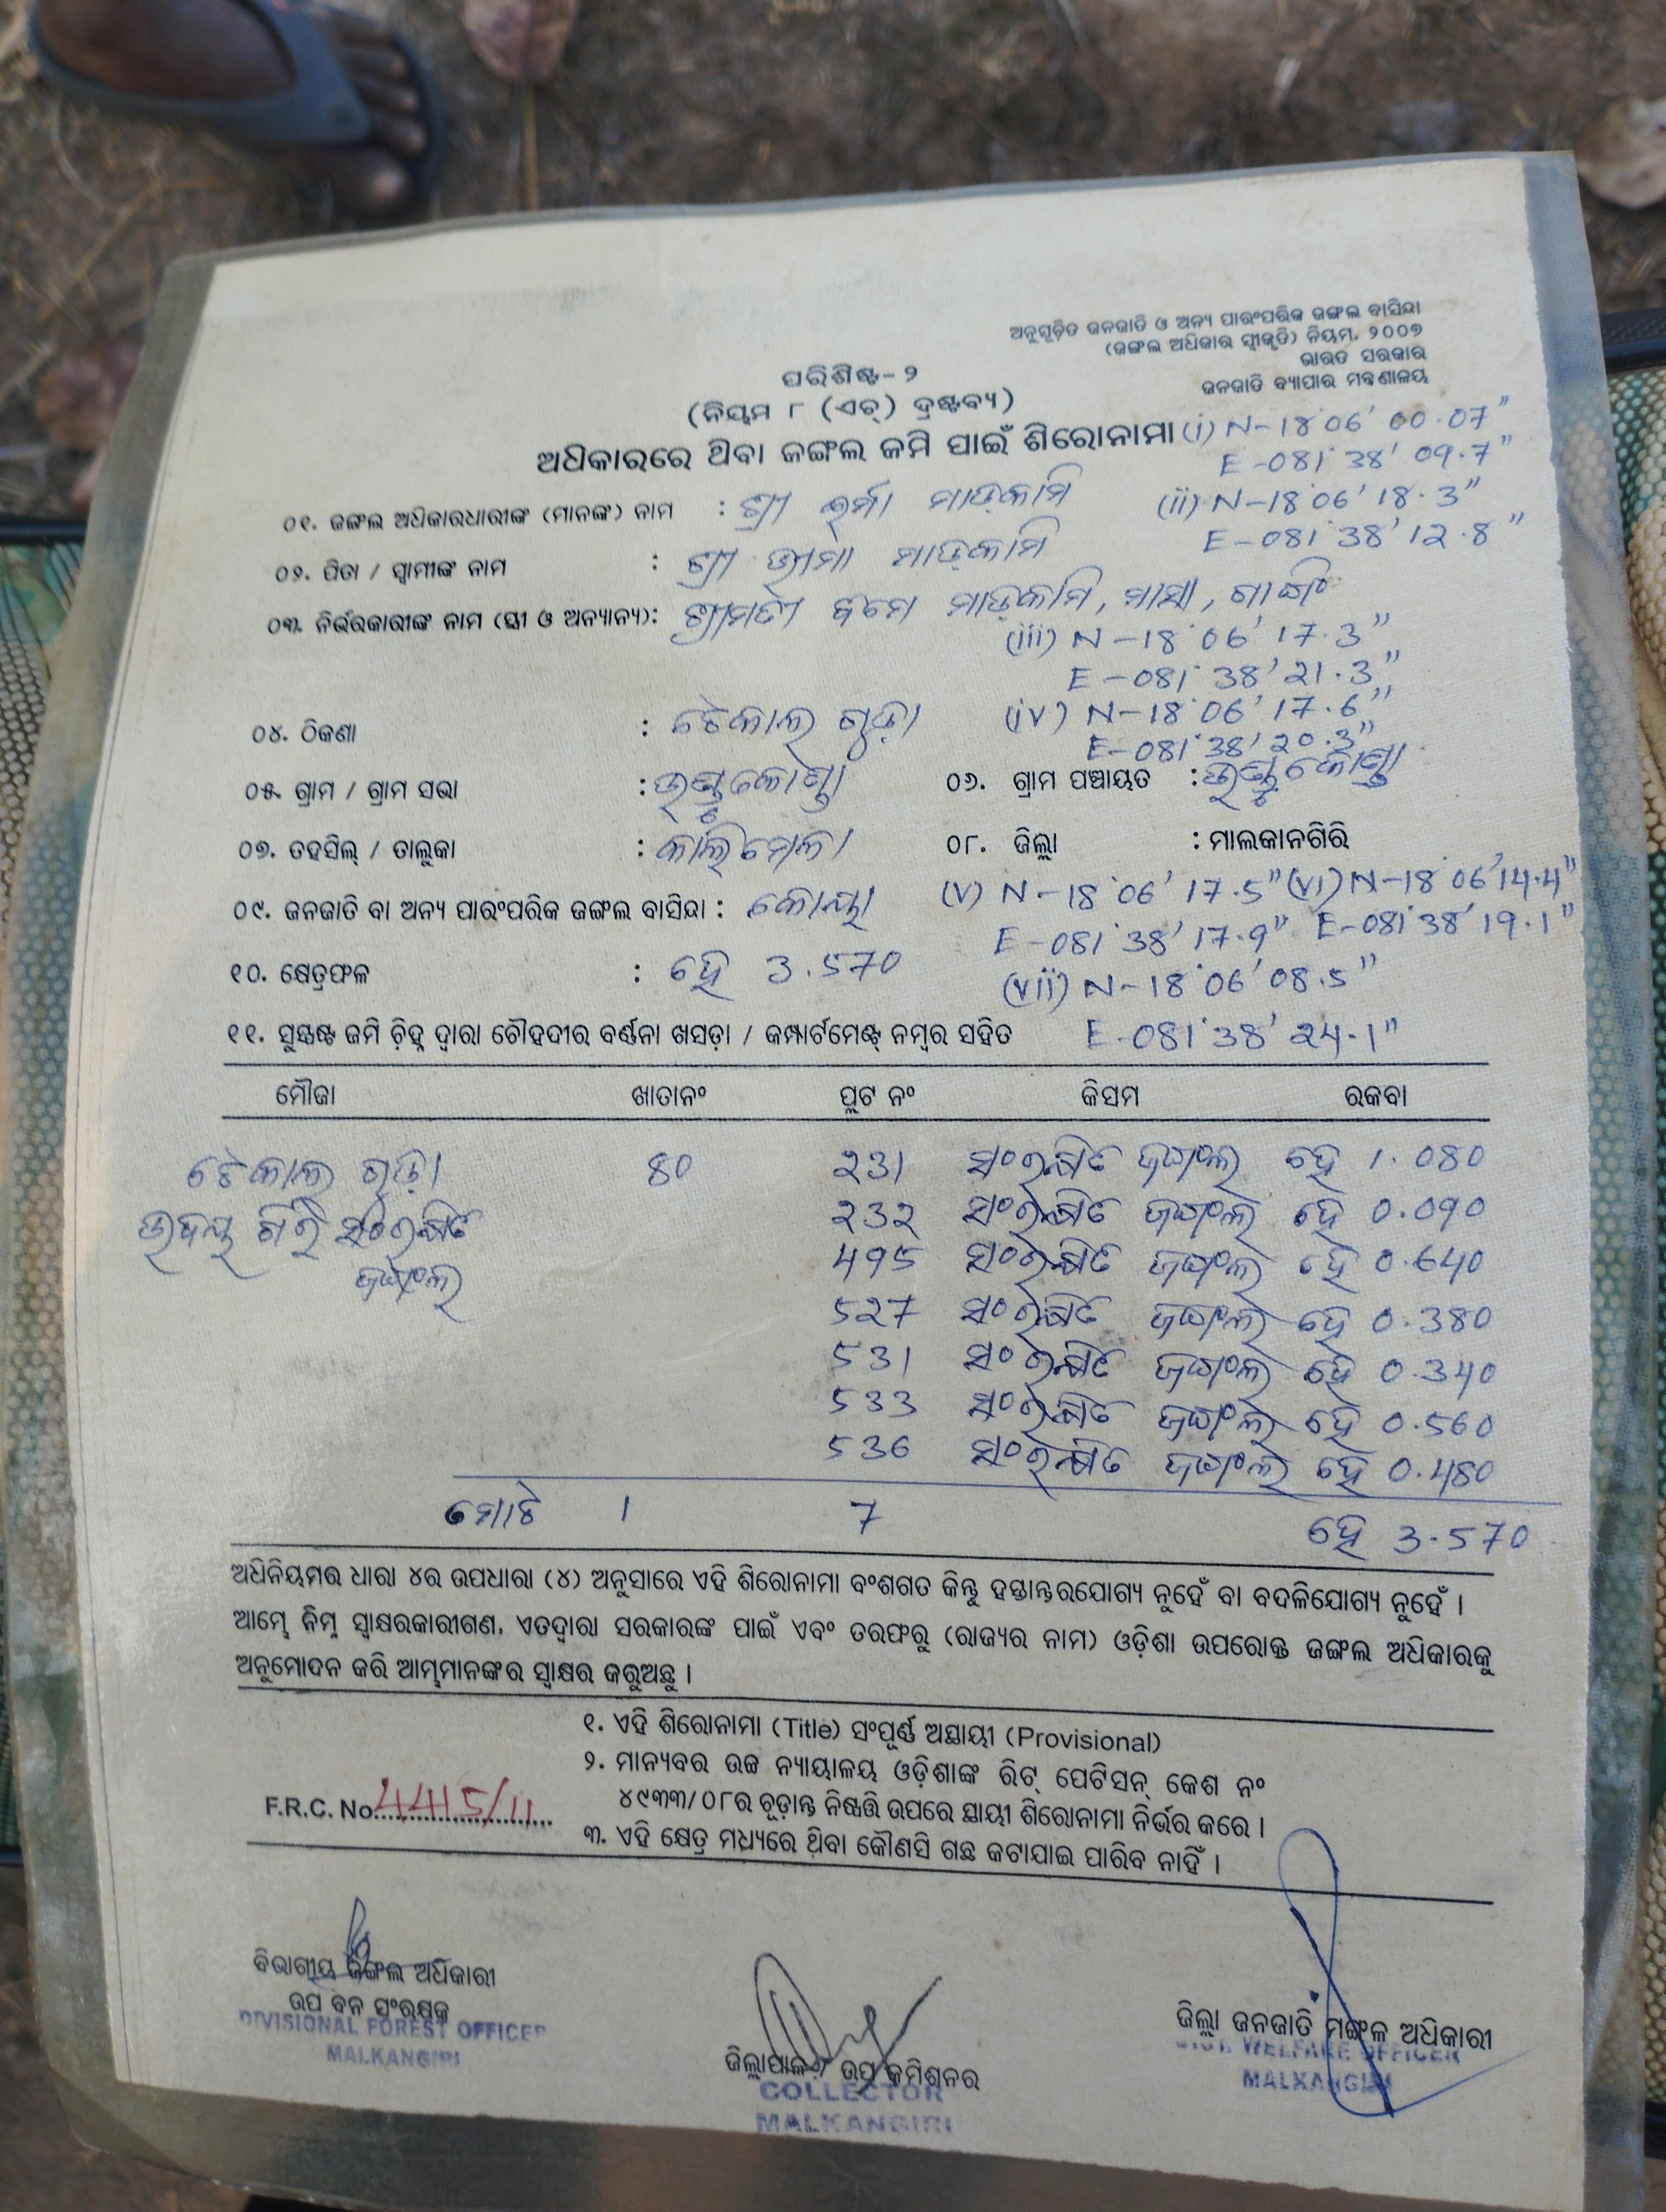 ଅନୁସୂଚିତ ଜନଜାତି ଓ ଅନ୍ୟ ପାରଂପରିକ ଜଙ୍ଗଲ ବାସିନ୍ଦା
(ଜଙ୍ଗଲ ଅଧିକାର ସ୍ୱୀକୃତି) ନିୟମ, ୨୦୦୭
ଭାରତ ସରକାର
ଜନଜାତି ବ୍ୟାପାର ମନ୍ତ୍ରଣାଳୟ
ପରିଶିଷ୍ଟ-୨
(ନିୟମ ୮ (ଏଚ୍) ଦ୍ରଷ୍ଟବ୍ୟ)
ଅଧିକାରରେ ଥିବା ଜଙ୍ଗଲ ଜମି ପାଇଁ ଶିରୋନାମା (i) N-18°06' 00.07"
E-081° 38' 09.7"
୦୧. ଜଙ୍ଗଲ ଅଧିକାରଧାରୀଙ୍କ (ମାନଙ୍କ) ନାମ : ଶ୍ରୀ ଇର୍ମା ମାଡ଼କାମି (ii) N-18°06' 18.3"
E-081° 38' 12.8"
୦୨. ପିତା / ସ୍ୱାମୀଙ୍କ ନାମ : ଶ୍ରୀ ଭୀମା ମାଡ଼କାମି
୦୩. ନିର୍ଭରକାରୀଙ୍କ ନାମ (ସ୍ତ୍ରୀ ଓ ଅନ୍ୟାନ୍ୟ): ଶ୍ରୀମତୀ ମାଡ଼କାମି,
(iii) N-18°06' 17.3"
E-081° 38' 21.3"
୦୪. ଠିକଣା : ଟେକାଲ ଗୁଡ଼ା (iv) N-18°06' 17.6"
E-081° 38' 20.3"
୦୫. ଗ୍ରାମ / ଗ୍ରାମ ସଭା : ୦୬. ଗ୍ରାମ ପଞ୍ଚାୟତ :
୦୭. ତହସିଲ୍ / ତାଲୁକା : କାଲିମେଳା ୦୮. ଜିଲ୍ଲା : ମାଲକାନଗିରି
୦୯. ଜନଜାତି ବା ଅନ୍ୟ ପାରଂପରିକ ଜଙ୍ଗଲ ବାସିନ୍ଦା : କୋୟା (v) N-18°06' 17.5" (vi) N-18°06' 14.4"
E-081° 38' 17.9" E-081° 38' 19.1"
୧୦. କ୍ଷେତ୍ରଫଳ : ହେ 3.570 (vii) N-18°06' 08.5"
୧୧. ସୁସ୍ପଷ୍ଟ ଜମି ଚିହ୍ନ ଦ୍ୱାରା ଚୌହଦୀର ବର୍ଣ୍ଣନା ଖସଡ଼ା / କମ୍ପାର୍ଟମେଣ୍ଟ୍ ନମ୍ବର ସହିତ E-081° 38' 24.1"
ମୌଜା ଖାତାନଂ ପ୍ଲଟ ନଂ କିସମ ରକବା
ଟେକାଲ ଗୁଡ଼ା 80 231 ସଂରକ୍ଷିତ ଜଙ୍ଗଲ ହେ 1.080
ଉଦୟ ଗିରି ସଂରକ୍ଷିତ 232 ସଂରକ୍ଷିତ ଜଙ୍ଗଲ ହେ 0.090
ଜଙ୍ଗଲ 495 ସଂରକ୍ଷିତ ଜଙ୍ଗଲ ହେ 0.640
527 ସଂରକ୍ଷିତ ଜଙ୍ଗଲ ହେ 0.380
531 ସଂରକ୍ଷିତ ଜଙ୍ଗଲ ହେ 0.340
533 ସଂରକ୍ଷିତ ଜଙ୍ଗଲ ହେ 0.560
536 ସଂରକ୍ଷିତ ଜଙ୍ଗଲ ହେ 0.480
ମୋଟ 1 7 ହେ 3.570
ଅଧିନିୟମର ଧାରା ୪ର ଉପଧାରା (୪) ଅନୁସାରେ ଏହି ଶିରୋନାମା ବଂଶଗତ କିନ୍ତୁ ହସ୍ତାନ୍ତରଯୋଗ୍ୟ ନୁହେଁ ବା ବଦଳିଯୋଗ୍ୟ ନୁହେଁ ।
ଆମ୍ଭେ ନିମ୍ନ ସ୍ୱାକ୍ଷରକାରୀଗଣ, ଏତଦ୍ୱାରା ସରକାରଙ୍କ ପାଇଁ ଏବଂ ତରଫରୁ (ରାଜ୍ୟର ନାମ) ଓଡ଼ିଶା ଉପରୋକ୍ତ ଜଙ୍ଗଲ ଅଧିକାରକୁ
ଅନୁମୋଦନ କରି ଆମ୍ଭମାନଙ୍କର ସ୍ୱାକ୍ଷର କରୁଅଛୁ ।
୧. ଏହି ଶିରୋନାମା (Title) ସଂପୂର୍ଣ୍ଣ ଅସ୍ଥାୟୀ (Provisional)
୨. ମାନ୍ୟବର ଉଚ୍ଚ ନ୍ୟାୟାଳୟ ଓଡ଼ିଶାଙ୍କ ରିଟ୍ ପେଟିସନ୍ କେଶ ନଂ
୪୯୩୩/୦୮ର ଚୂଡ଼ାନ୍ତ ନିଷ୍ପତ୍ତି ଉପରେ ସ୍ଥାୟୀ ଶିରୋନାମା ନିର୍ଭର କରେ ।
F.R.C. No. 4415/11
୩. ଏହି କ୍ଷେତ୍ର ମଧ୍ୟରେ ଥିବା କୌଣସି ଗଛ କଟାଯାଇ ପାରିବ ନାହିଁ ।
ବିଭାଗୀୟ ଜଙ୍ଗଲ ଅଧିକାରୀ
ଉପ ବନ ସଂରକ୍ଷକ
DIVISIONAL FOREST OFFICER
MALKANGIRI
ଜିଲ୍ଲାପାଳ / ଉପ କମିଶନର
COLLECTOR
MALKANGIRI
ଜିଲ୍ଲା ଜନଜାତି ମଙ୍ଗଳ ଅଧିକାରୀ
DIST. WELFARE OFFICER
MALKANGIRI